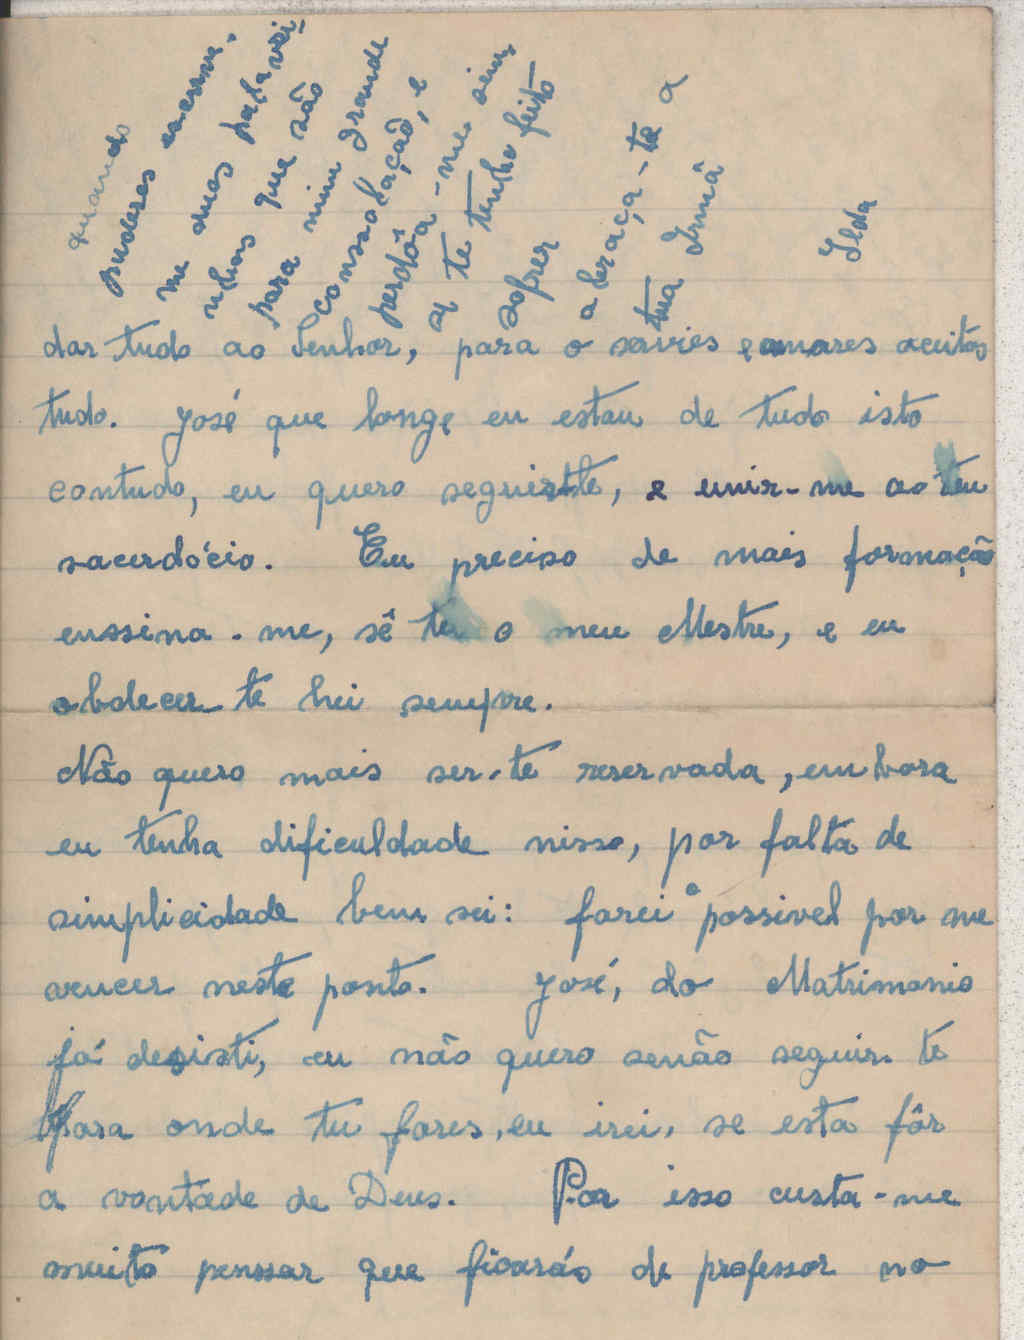 quando
puderes escreve-
me duas palavri-
nhas que são
para mim grande
consolação, e
perdôa-me, sim,
q te tenho feito
sofrer
abraça-te a
tua Irmã
Ilda
dar tudo ao Senhor, para o servires e amares aceitas
tudo. José que longe eu estou de tudo isto
contudo, eu quero seguir-te, e unir-me ao teu
sacerdócio. Eu preciso de mais formação
enssina-me, sê tu o meu Mestre, e eu
obdecer-te hei sempre.
Não quero mais ser-te reservada, embora
eu tenha dificuldade nisso, por falta de
simplicidade bem sei: farei o possivel por me
vencer neste ponto. José, do Matrimonio
já desisti, eu não quero senão seguir-te
Para onde tu fores, eu irei, se esta fôr
a vontade de Deus. Por isso custa-me
muito penssar que ficarás de professor no